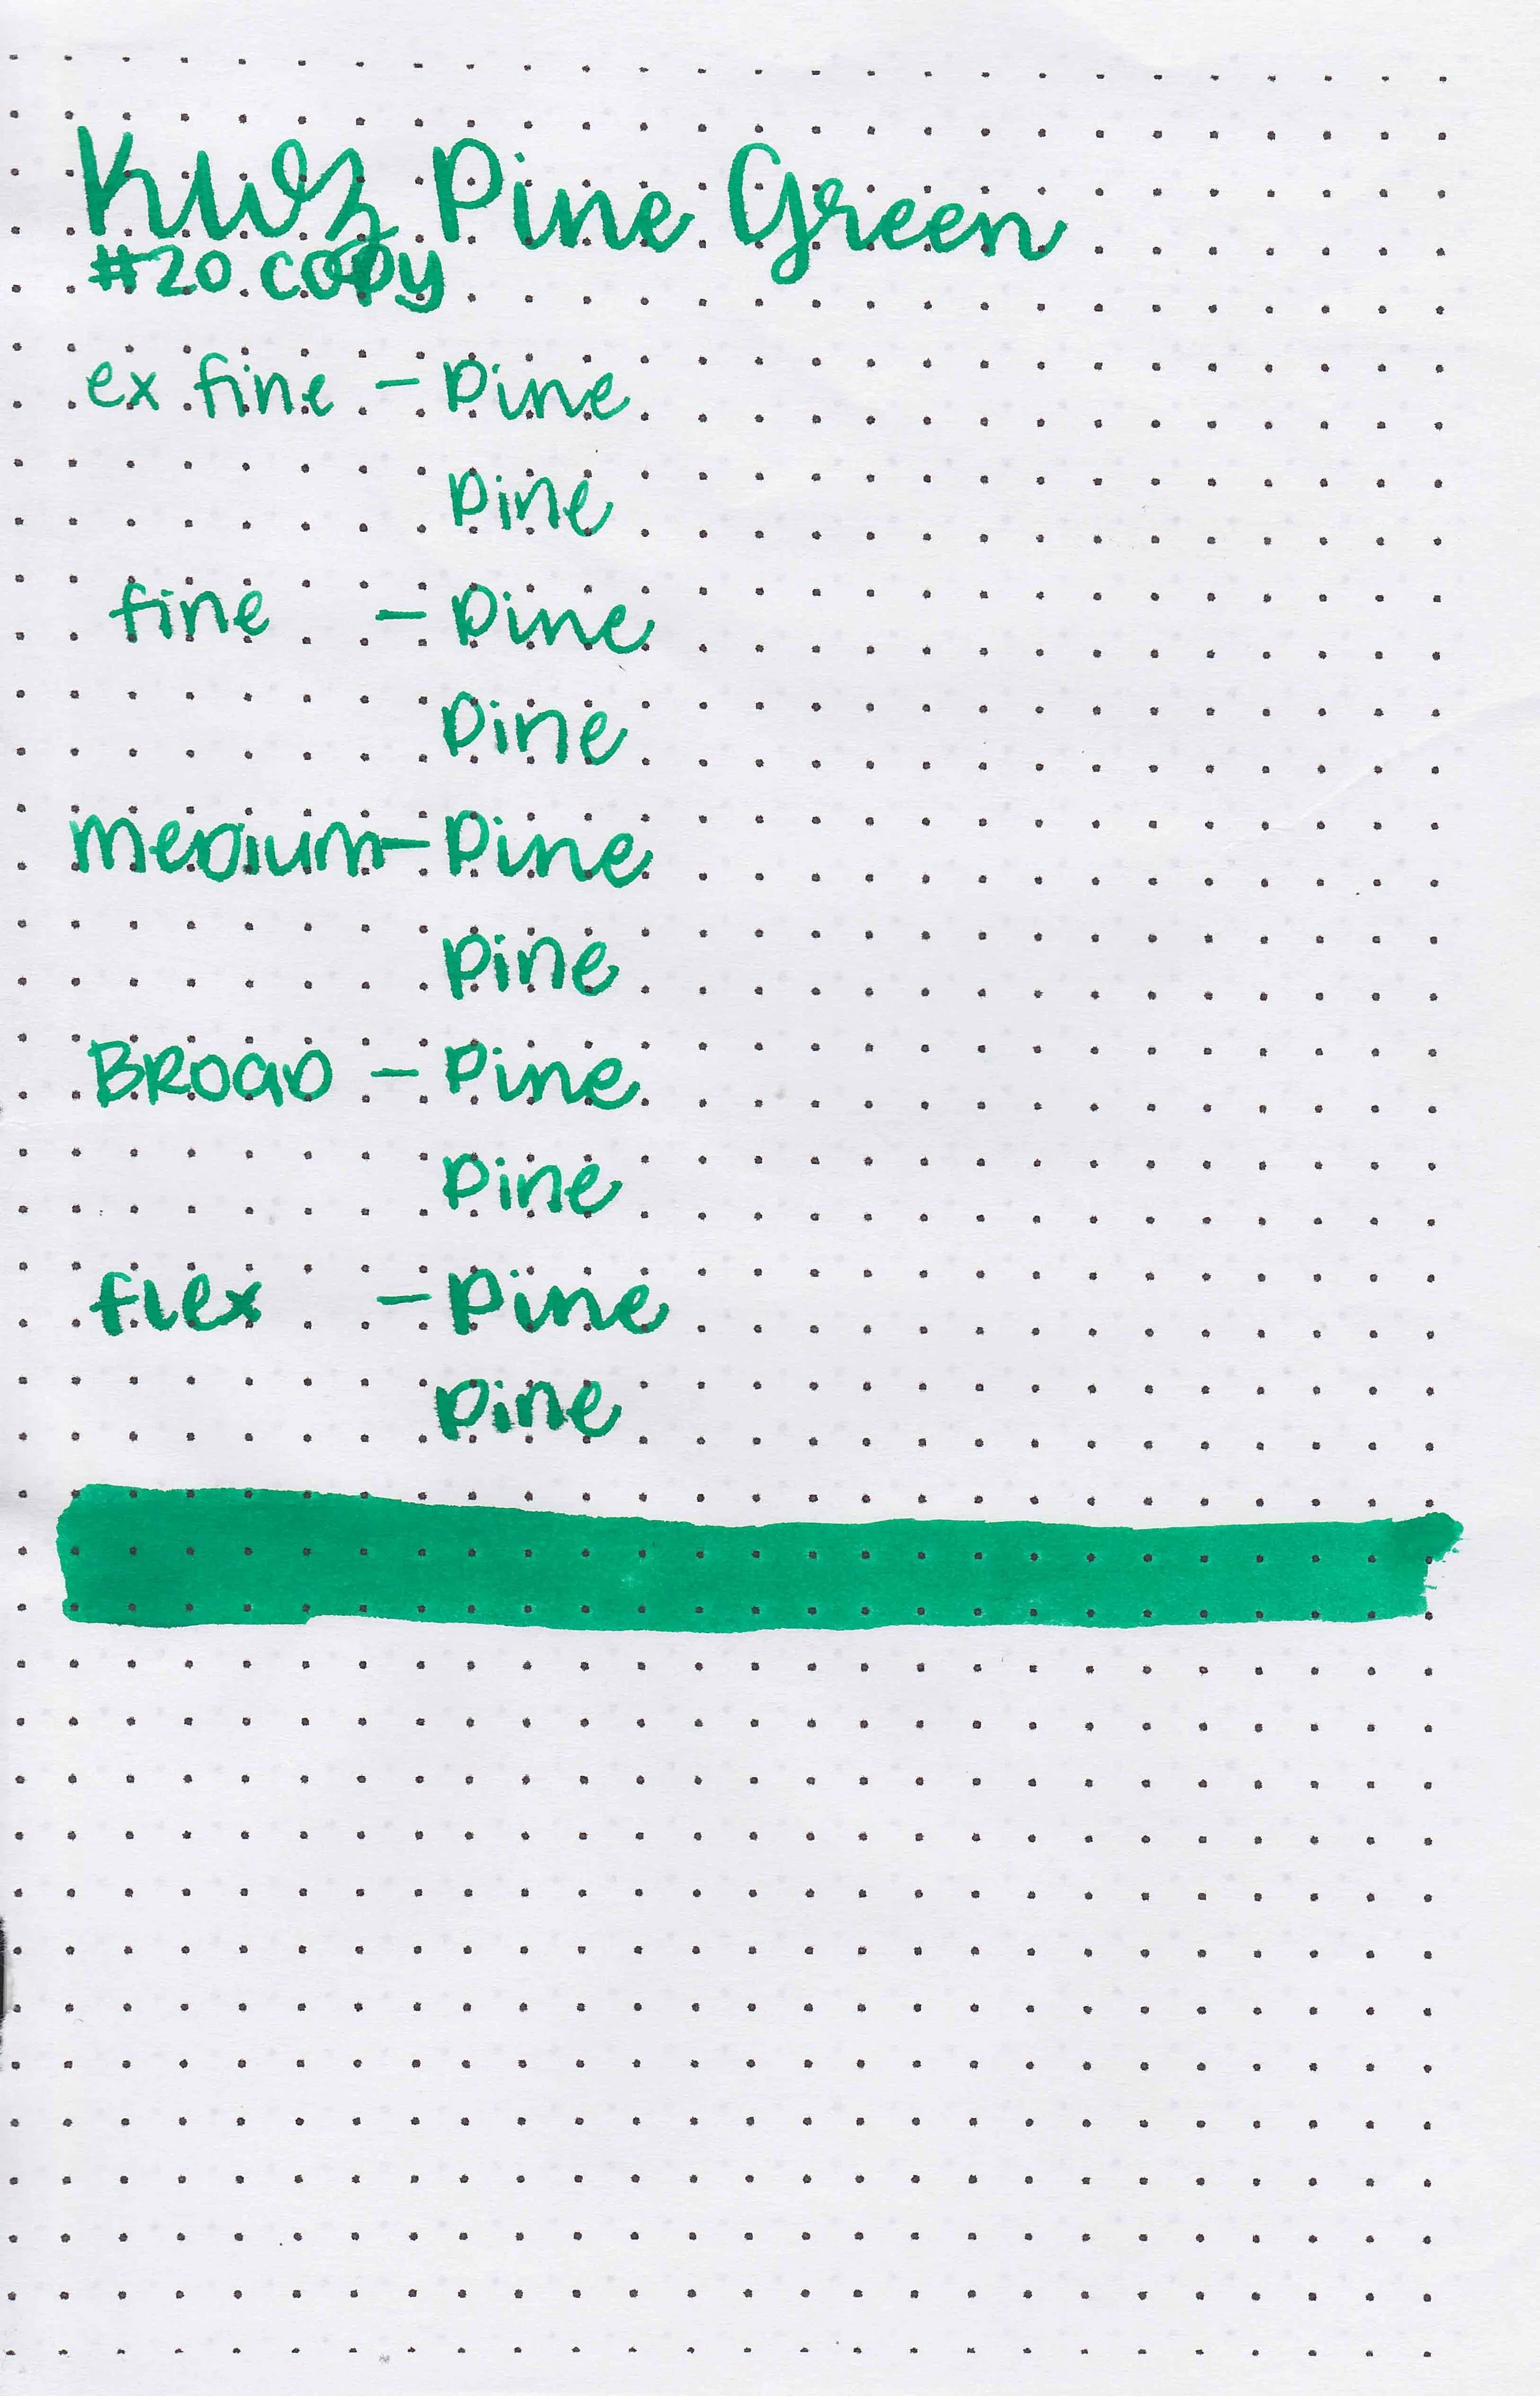 KWZ Pine Green
#20 copy
ex fine - Pine
Pine
fine - Pine
Pine
Medium - Pine
Pine
Broad - Pine
Pine
flex - Pine
Pine